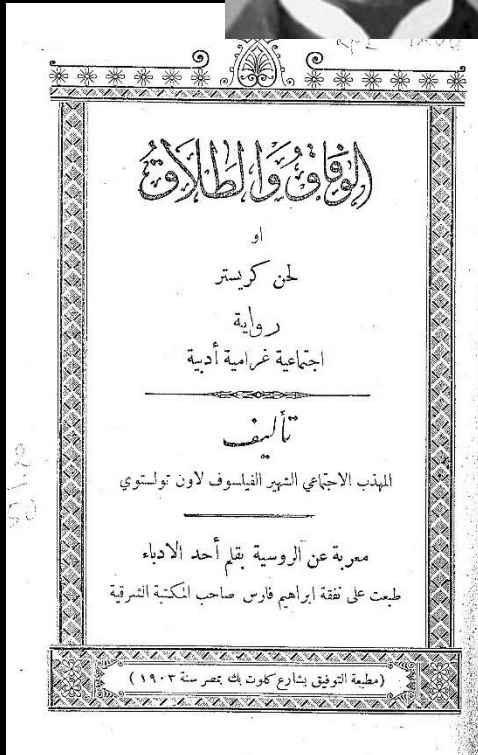 الوفاق والطلاق
او
لحن كريستر
رواية
اجتماعية غرامية أدبية
تأليف
المهذب الاجتماعي الشهير الفيلسوف لاون تولستوي
معربة عن الروسية بقلم أحد الادباء
طبعت على نفقة ابراهيم فارس صاحب المكتبة الشرقية
(مطبعة التوفيق بشارع كلوت بك بمصر سنة ١٩٠٣)